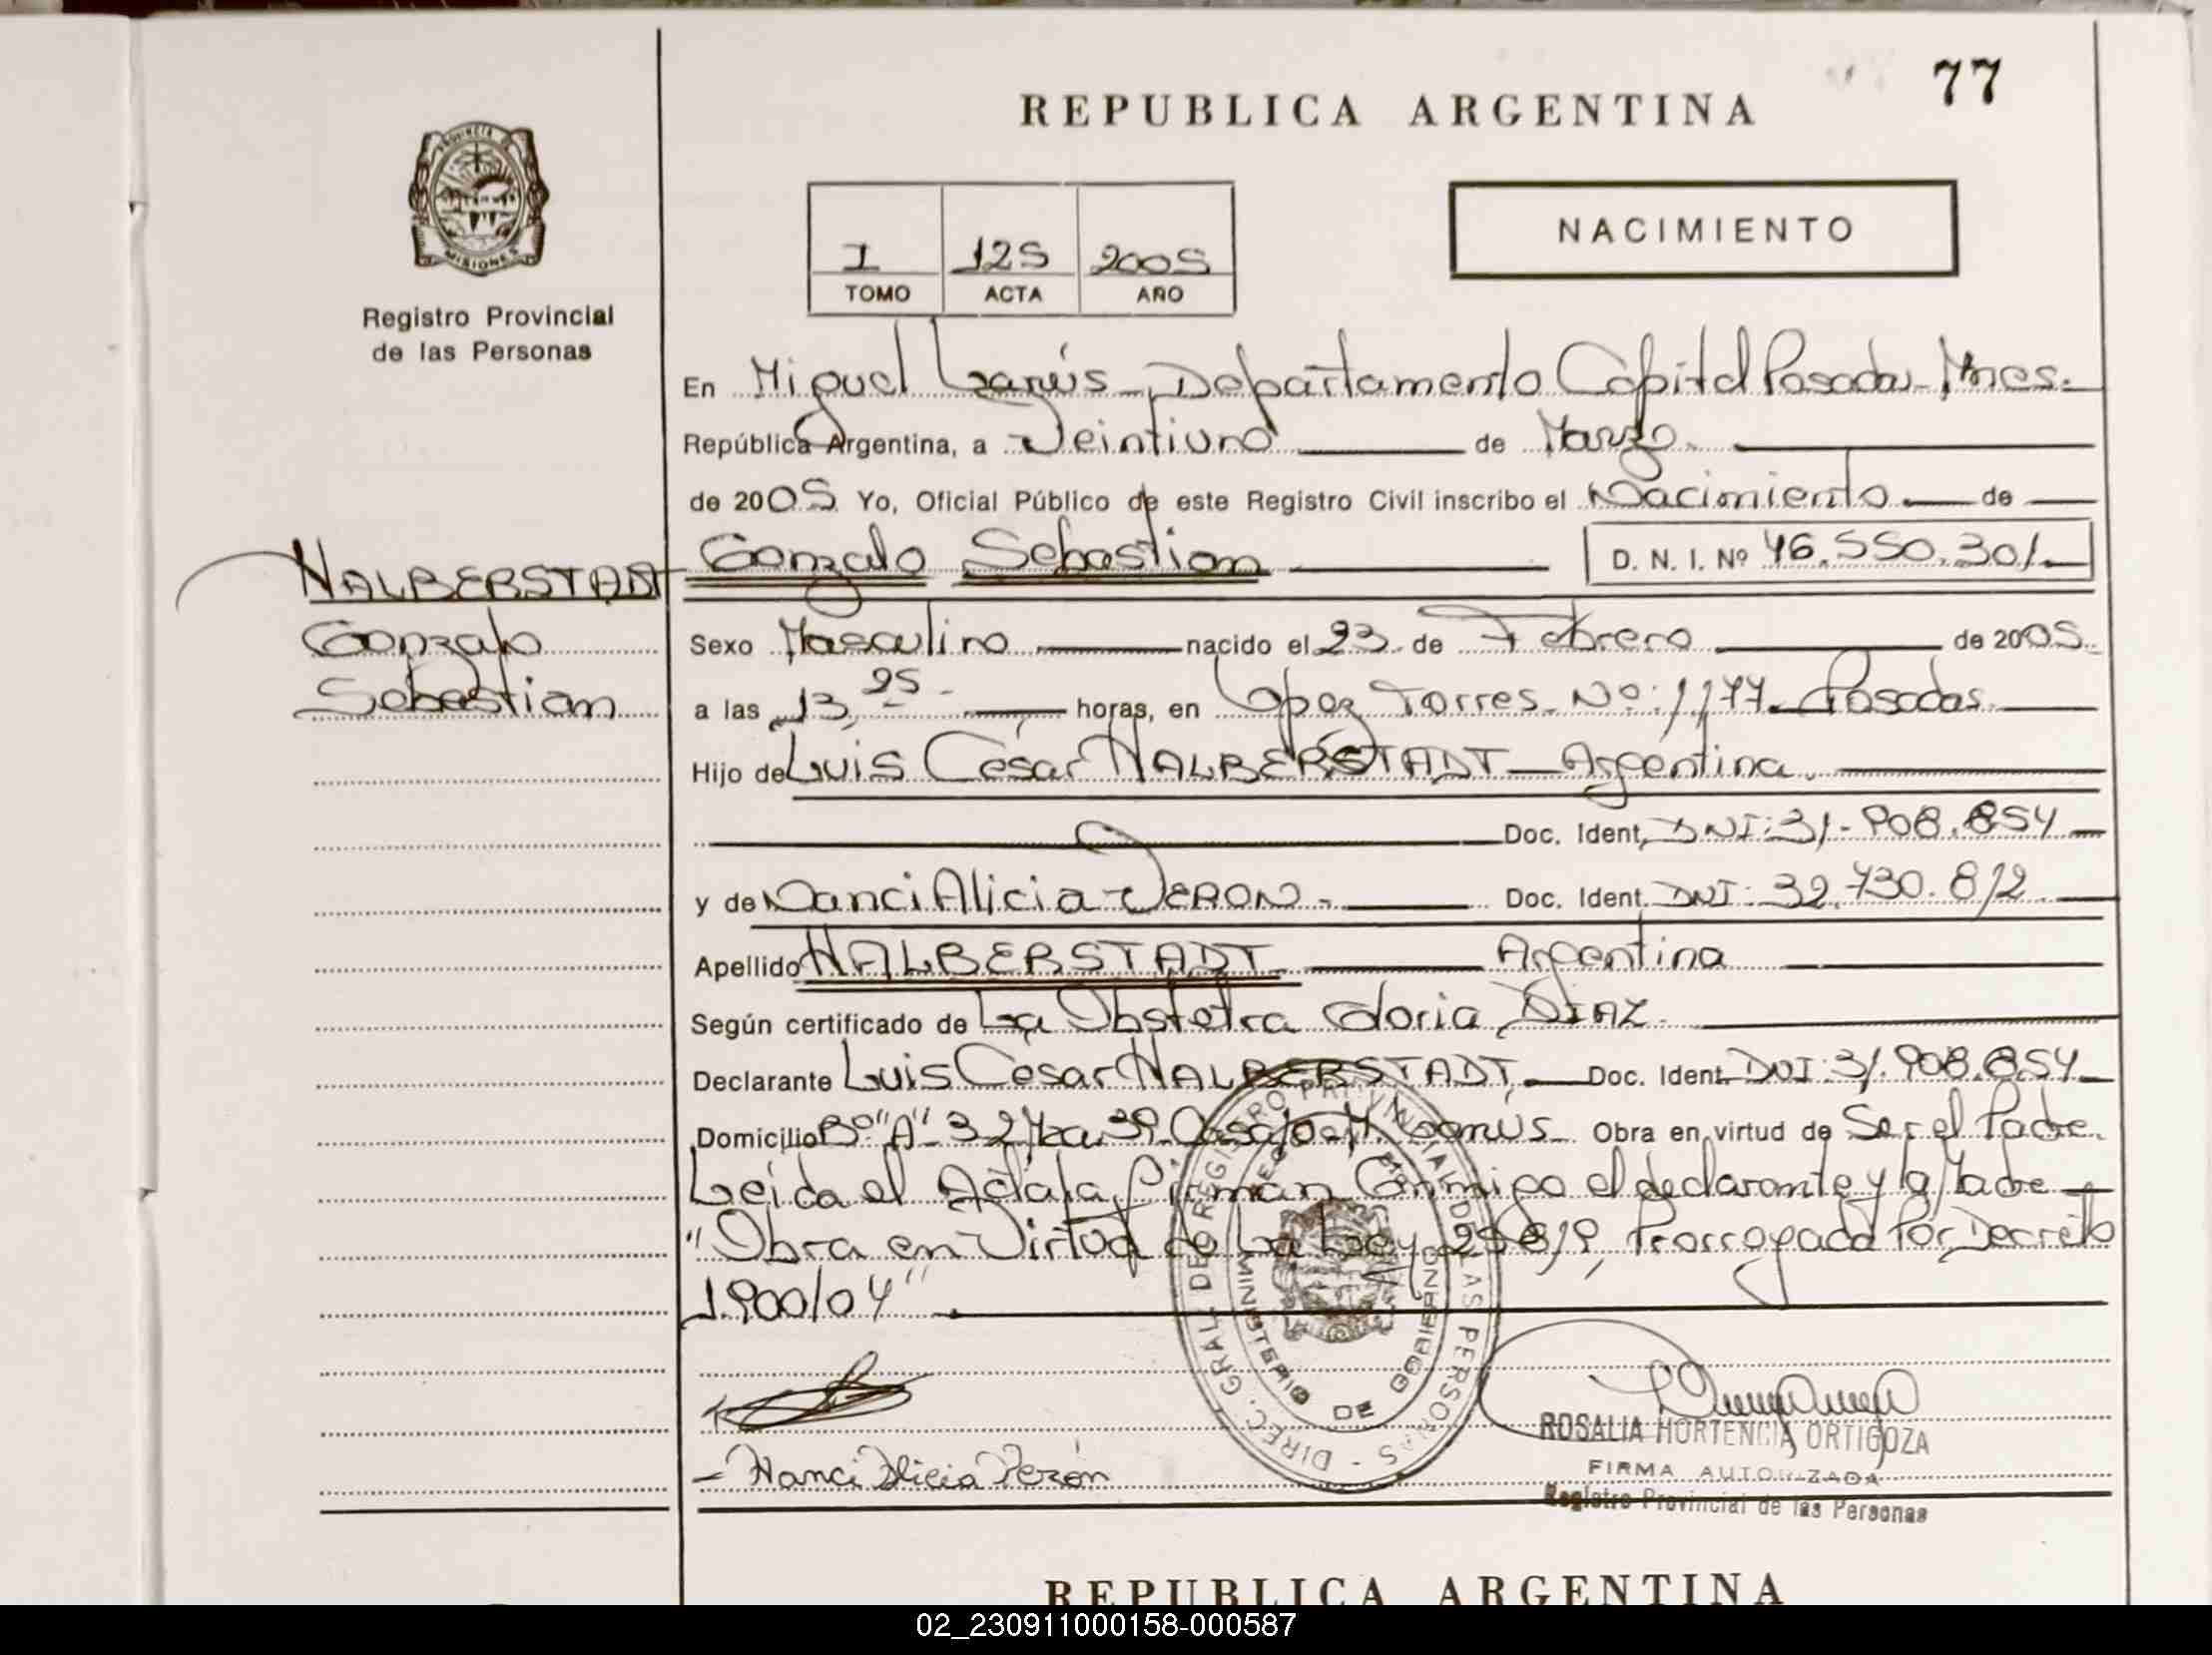 77
REPUBLICA ARGENTINA
PROVINCIA
MISIONES
Registro Provincial
de las Personas
I 125 2005
TOMO ACTA AÑO
NACIMIENTO
En Miguel Lanús - Departamento Capital Posadas - Mnes.
República Argentina, a Veintiuno de Marzo
de 2005 Yo, Oficial Público de este Registro Civil inscribo el Nacimiento de
HALBERSTADT Gonzalo Sebastian D. N. I. Nº 46.550.301
Gonzalo
Sebastian
Sexo Masculino nacido el 23 de Febrero de 2005
a las 13,25 horas, en Lopez Torres Nº: 1177 Posadas
Hijo de Luis César HALBERSTADT Argentina
Doc. Ident. DNI: 31.908.854
y de Nanci Alicia VERON Doc. Ident. DNI: 32.730.812
Apellido HALBERSTADT Argentina
Según certificado de La Obstetra Gloria DIAZ
Declarante Luis César HALBERSTADT Doc. Ident. DNI: 31.908.854
Domicilio Bº "A" 32 Mza. 39 Casa Lanús Obra en virtud de Ser el Padre
Leída el Acta la firman Conmigo el declarante y la Madre
"Obra en Virtud de La Ley 25819, Prorrogada Por Decreto
1.900/04"
DIREC. GRAL. DE REGISTRO PROVINCIAL DE LAS PERSONAS
MINISTERIO DE GOBIERNO
Nanci Alicia Verón
ROSALIA HORTENCIA ORTIGOZA
FIRMA AUTORIZADA
Registro Provincial de las Personas
REPUBLICA ARGENTINA
02_230911000158-000587